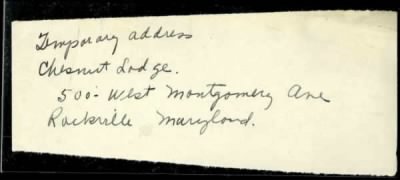 Temporary address
Chesnut Lodge.
500- West Montgomery Ave
Rockville Maryland.